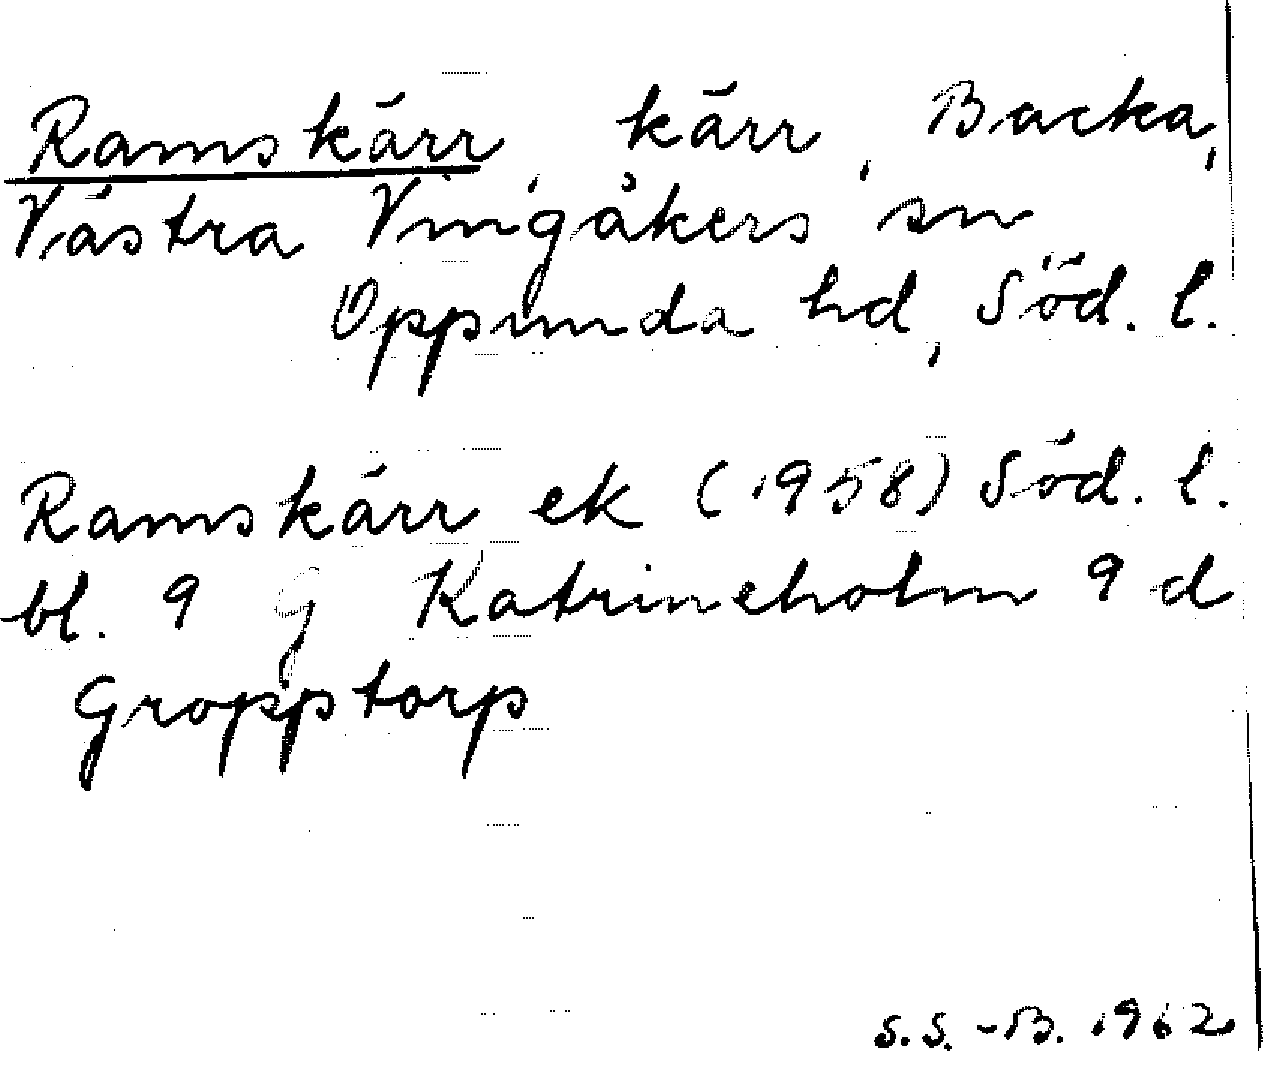 Ramskärr, kärr, Backa,
Västra Vingåkers sn
Oppunda hd, Söd. l.
Ramskärr ek (1958) Söd. l.
bl. 9 G Katrineholm 9 d
Gropptorp
S.S.-B. 1962